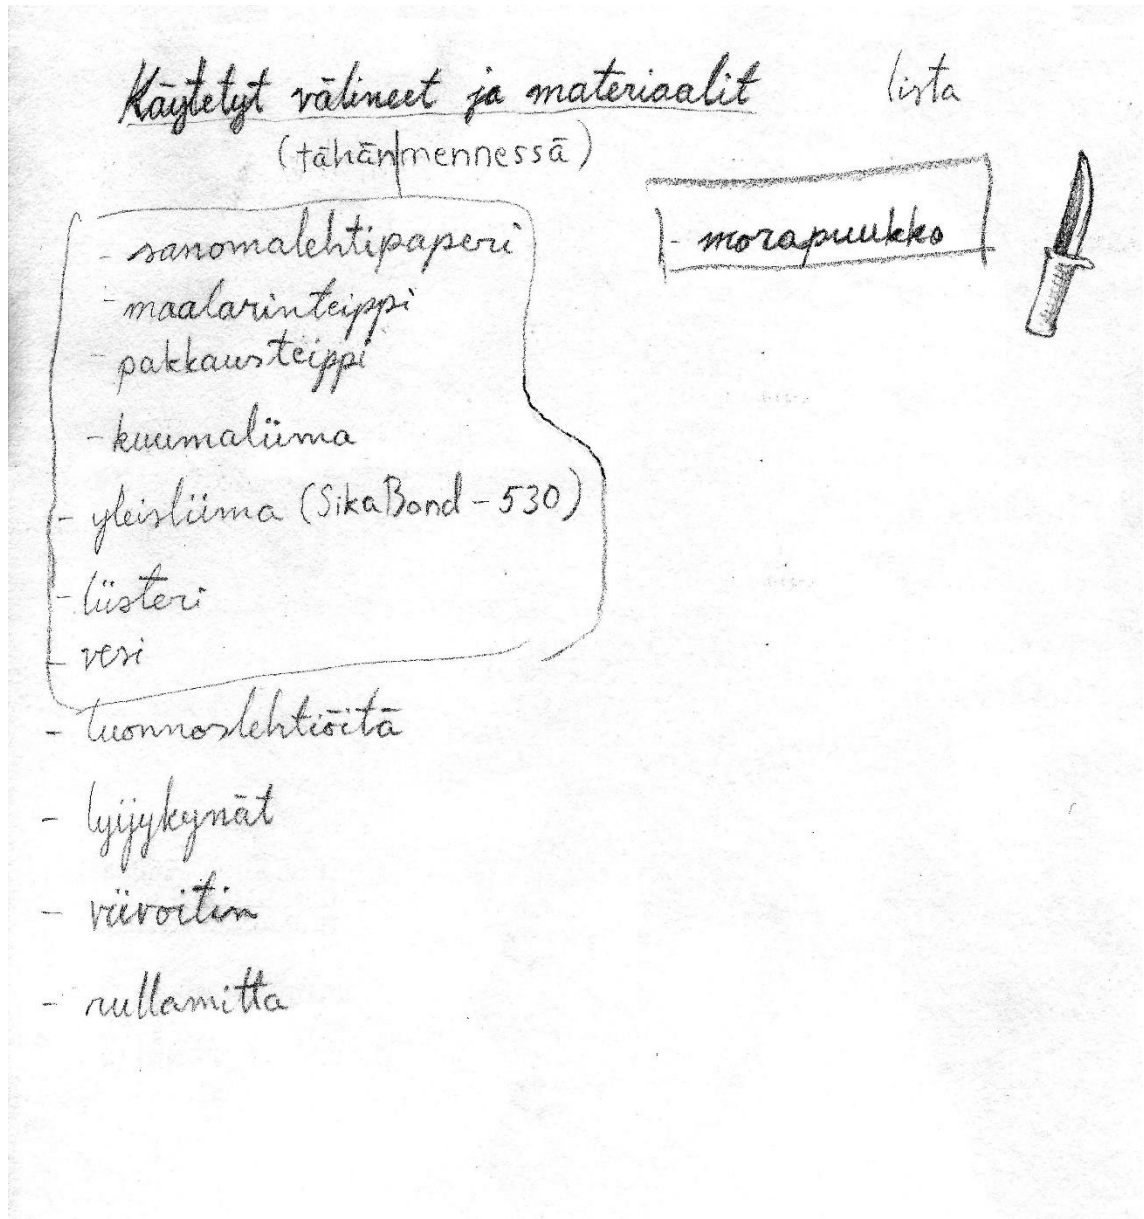 Käytetyt välineet ja materiaalit lista
(tähän mennessä)
- sanomalehtipaperi
- maalarinteippi
- pakkausteippi
- kuumaliima
- yleisliima (SikaBond - 530)
- liisteri
- vesi
- luonnoslehtiöitä
- lyijykynät
- viivoitin
- rullamitta
- morapuukko